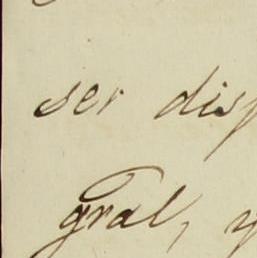 ser disp
gral, y